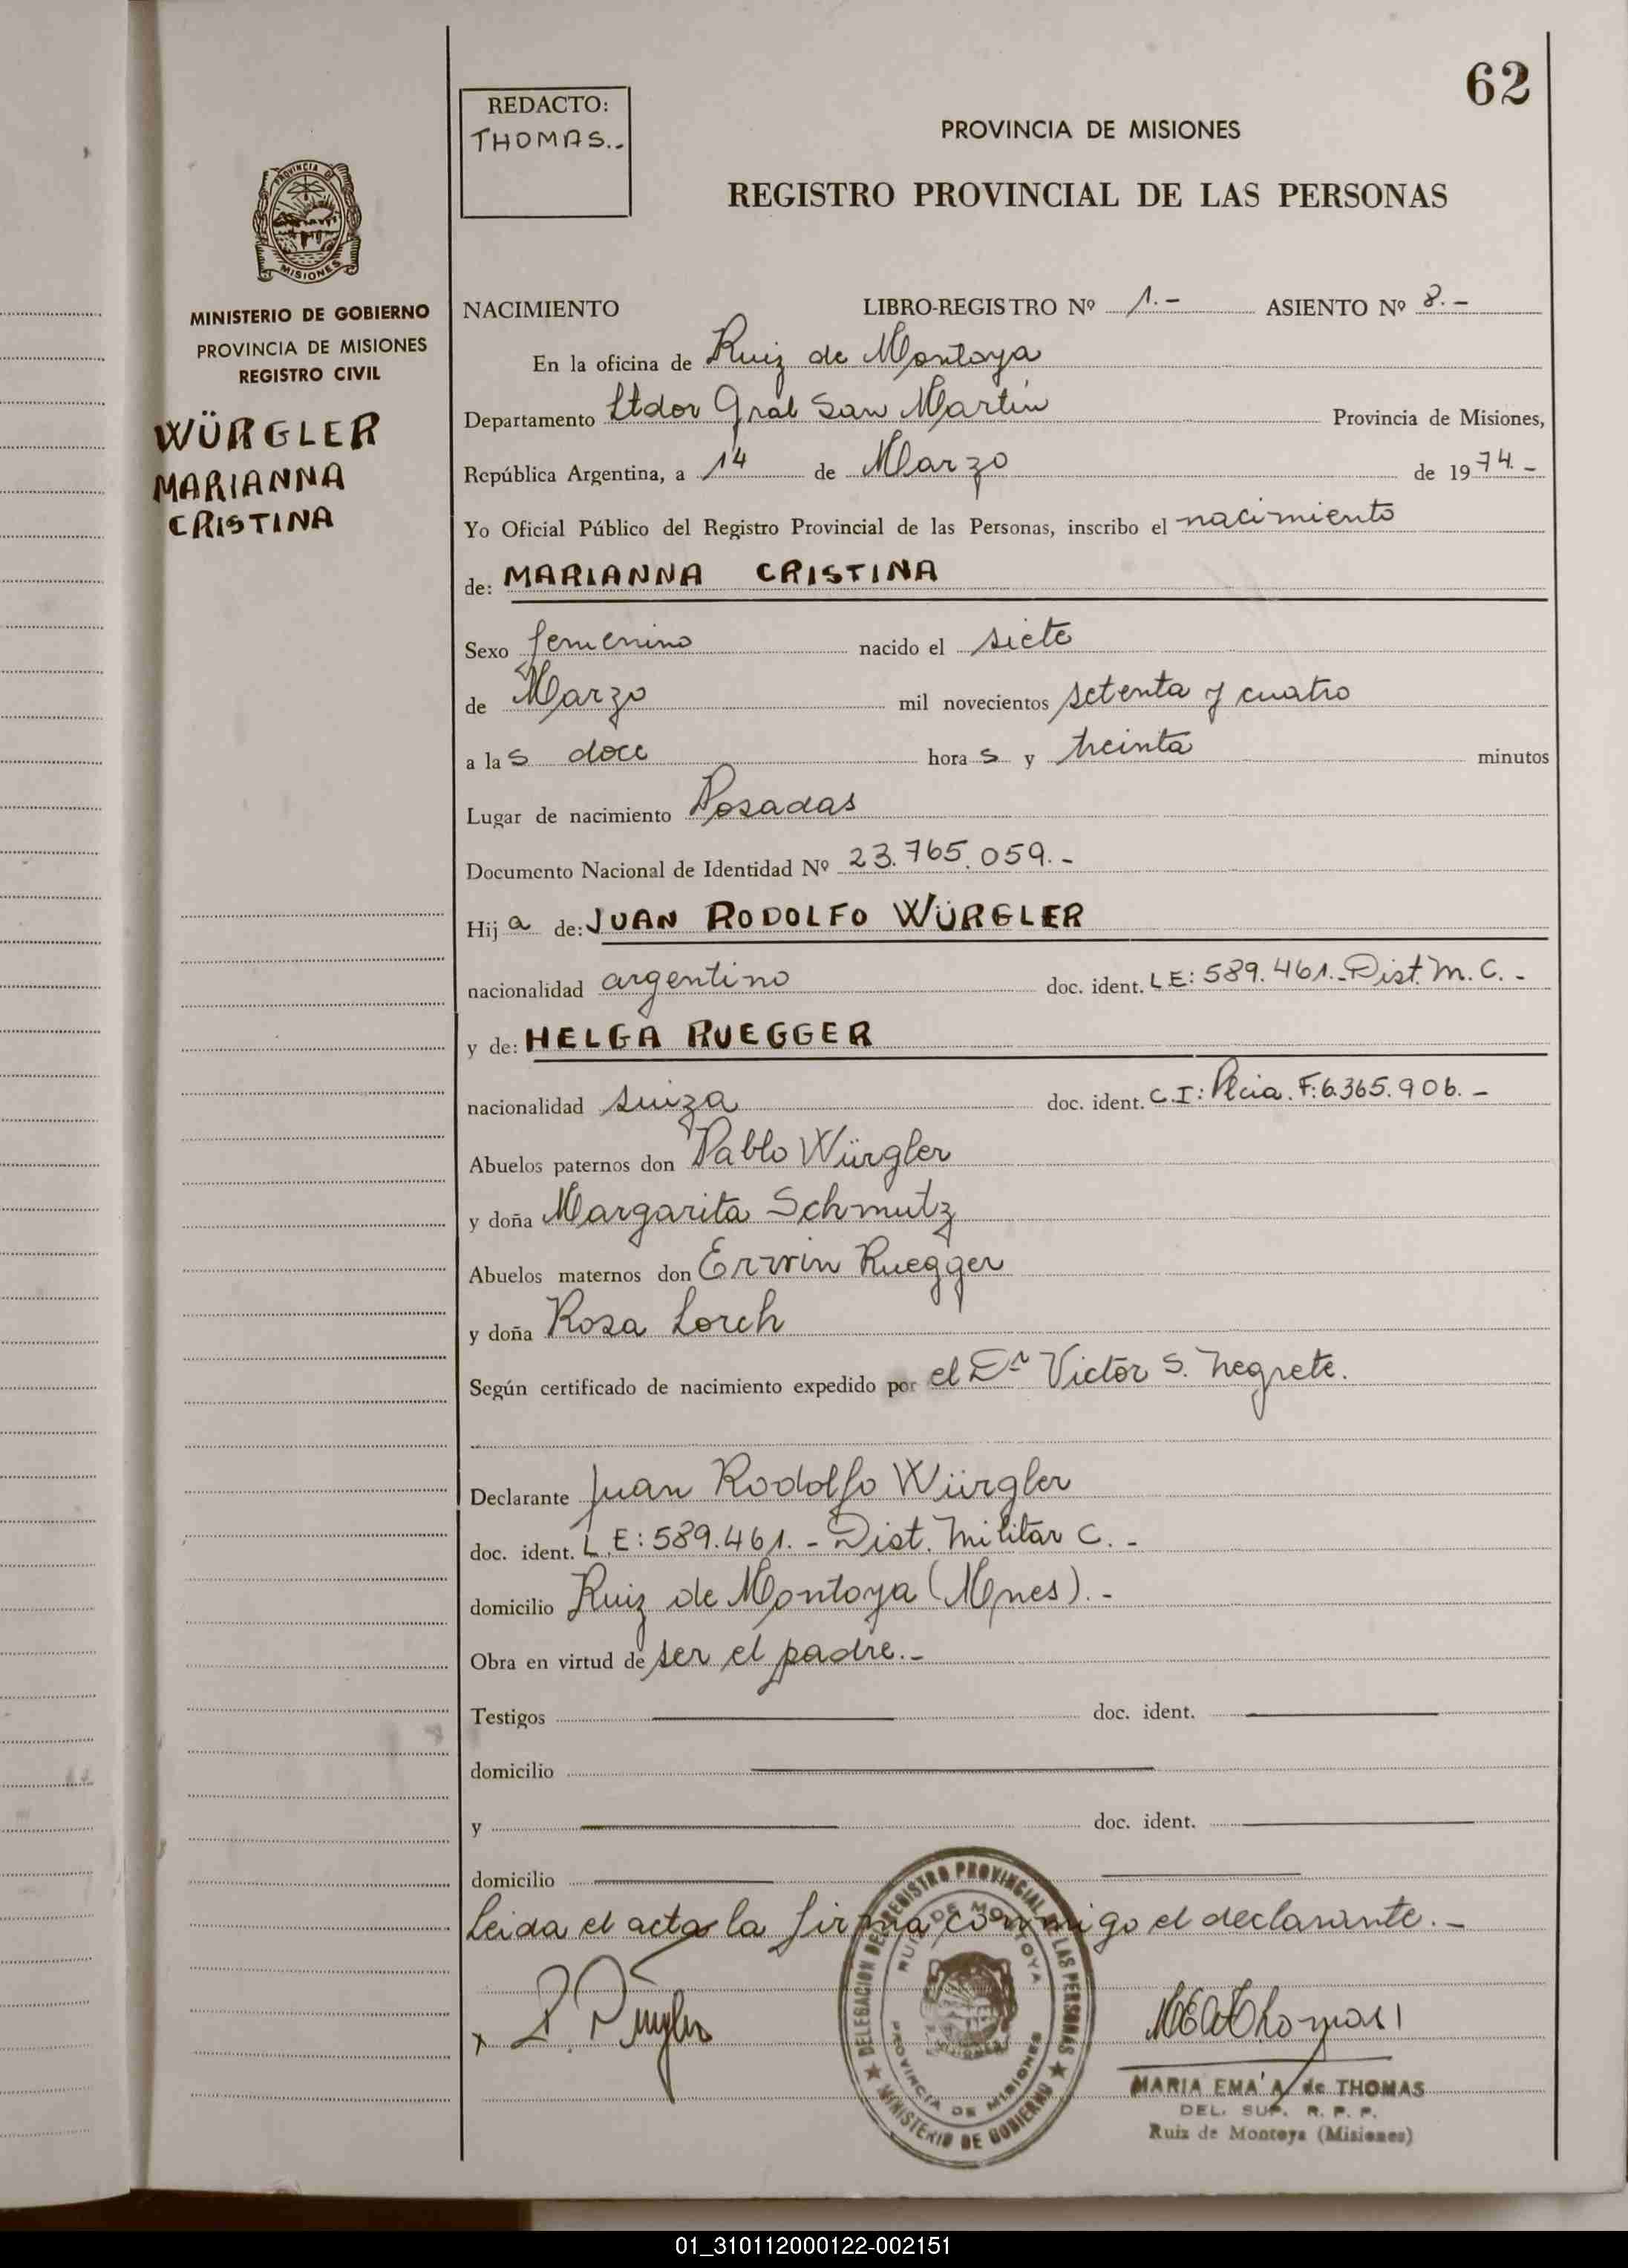 62
REDACTO:
THOMAS.-
PROVINCIA DE MISIONES
REGISTRO PROVINCIAL DE LAS PERSONAS
PROVINCIA DE
MISIONES
MINISTERIO DE GOBIERNO
PROVINCIA DE MISIONES
REGISTRO CIVIL
WÜRGLER
MARIANNA
CRISTINA
NACIMIENTO LIBRO-REGISTRO Nº 1.- ASIENTO Nº 8.-
En la oficina de Ruiz de Montoya
Departamento Ltdor Gral San Martín Provincia de Misiones,
República Argentina, a 14 de Marzo de 1974.-
Yo Oficial Público del Registro Provincial de las Personas, inscribo el nacimiento
de: MARIANNA CRISTINA
Sexo femenino nacido el siete
de Marzo mil novecientos setenta y cuatro
a las doce horas y treinta minutos
Lugar de nacimiento Posadas
Documento Nacional de Identidad Nº 23.765.059.-
Hija de: JUAN RODOLFO WÜRGLER
nacionalidad argentino doc. ident. LE: 589.461.-Dist. M. C. -
y de: HELGA RUEGGER
nacionalidad suiza doc. ident. C.I: Plcia. F: 6.365.906. -
Abuelos paternos don Pablo Würgler
y doña Margarita Schmutz
Abuelos maternos don Erwin Ruegger
y doña Rosa Lorch
Según certificado de nacimiento expedido por el Dr Victor S. Negrete.
Declarante Juan Rodolfo Würgler
doc. ident. L.E: 589.461. - Dist. Militar C. -
domicilio Ruiz de Montoya (Mnes). -
Obra en virtud de ser el padre.-
Testigos doc. ident.
domicilio
y doc. ident.
domicilio
Leida el acta la firma conmigo el declarante. -
DELEGACION DEL REGISTRO PROVINCIAL DE LAS PERSONAS
RUIZ DE MONTOYA
PROVINCIA DE MISIONES
MINISTERIO DE GOBIERNO
MARIA EMA A. de THOMAS
DEL. SUP. R. P. P.
Ruiz de Montoya (Misiones)
01_310112000122-002151